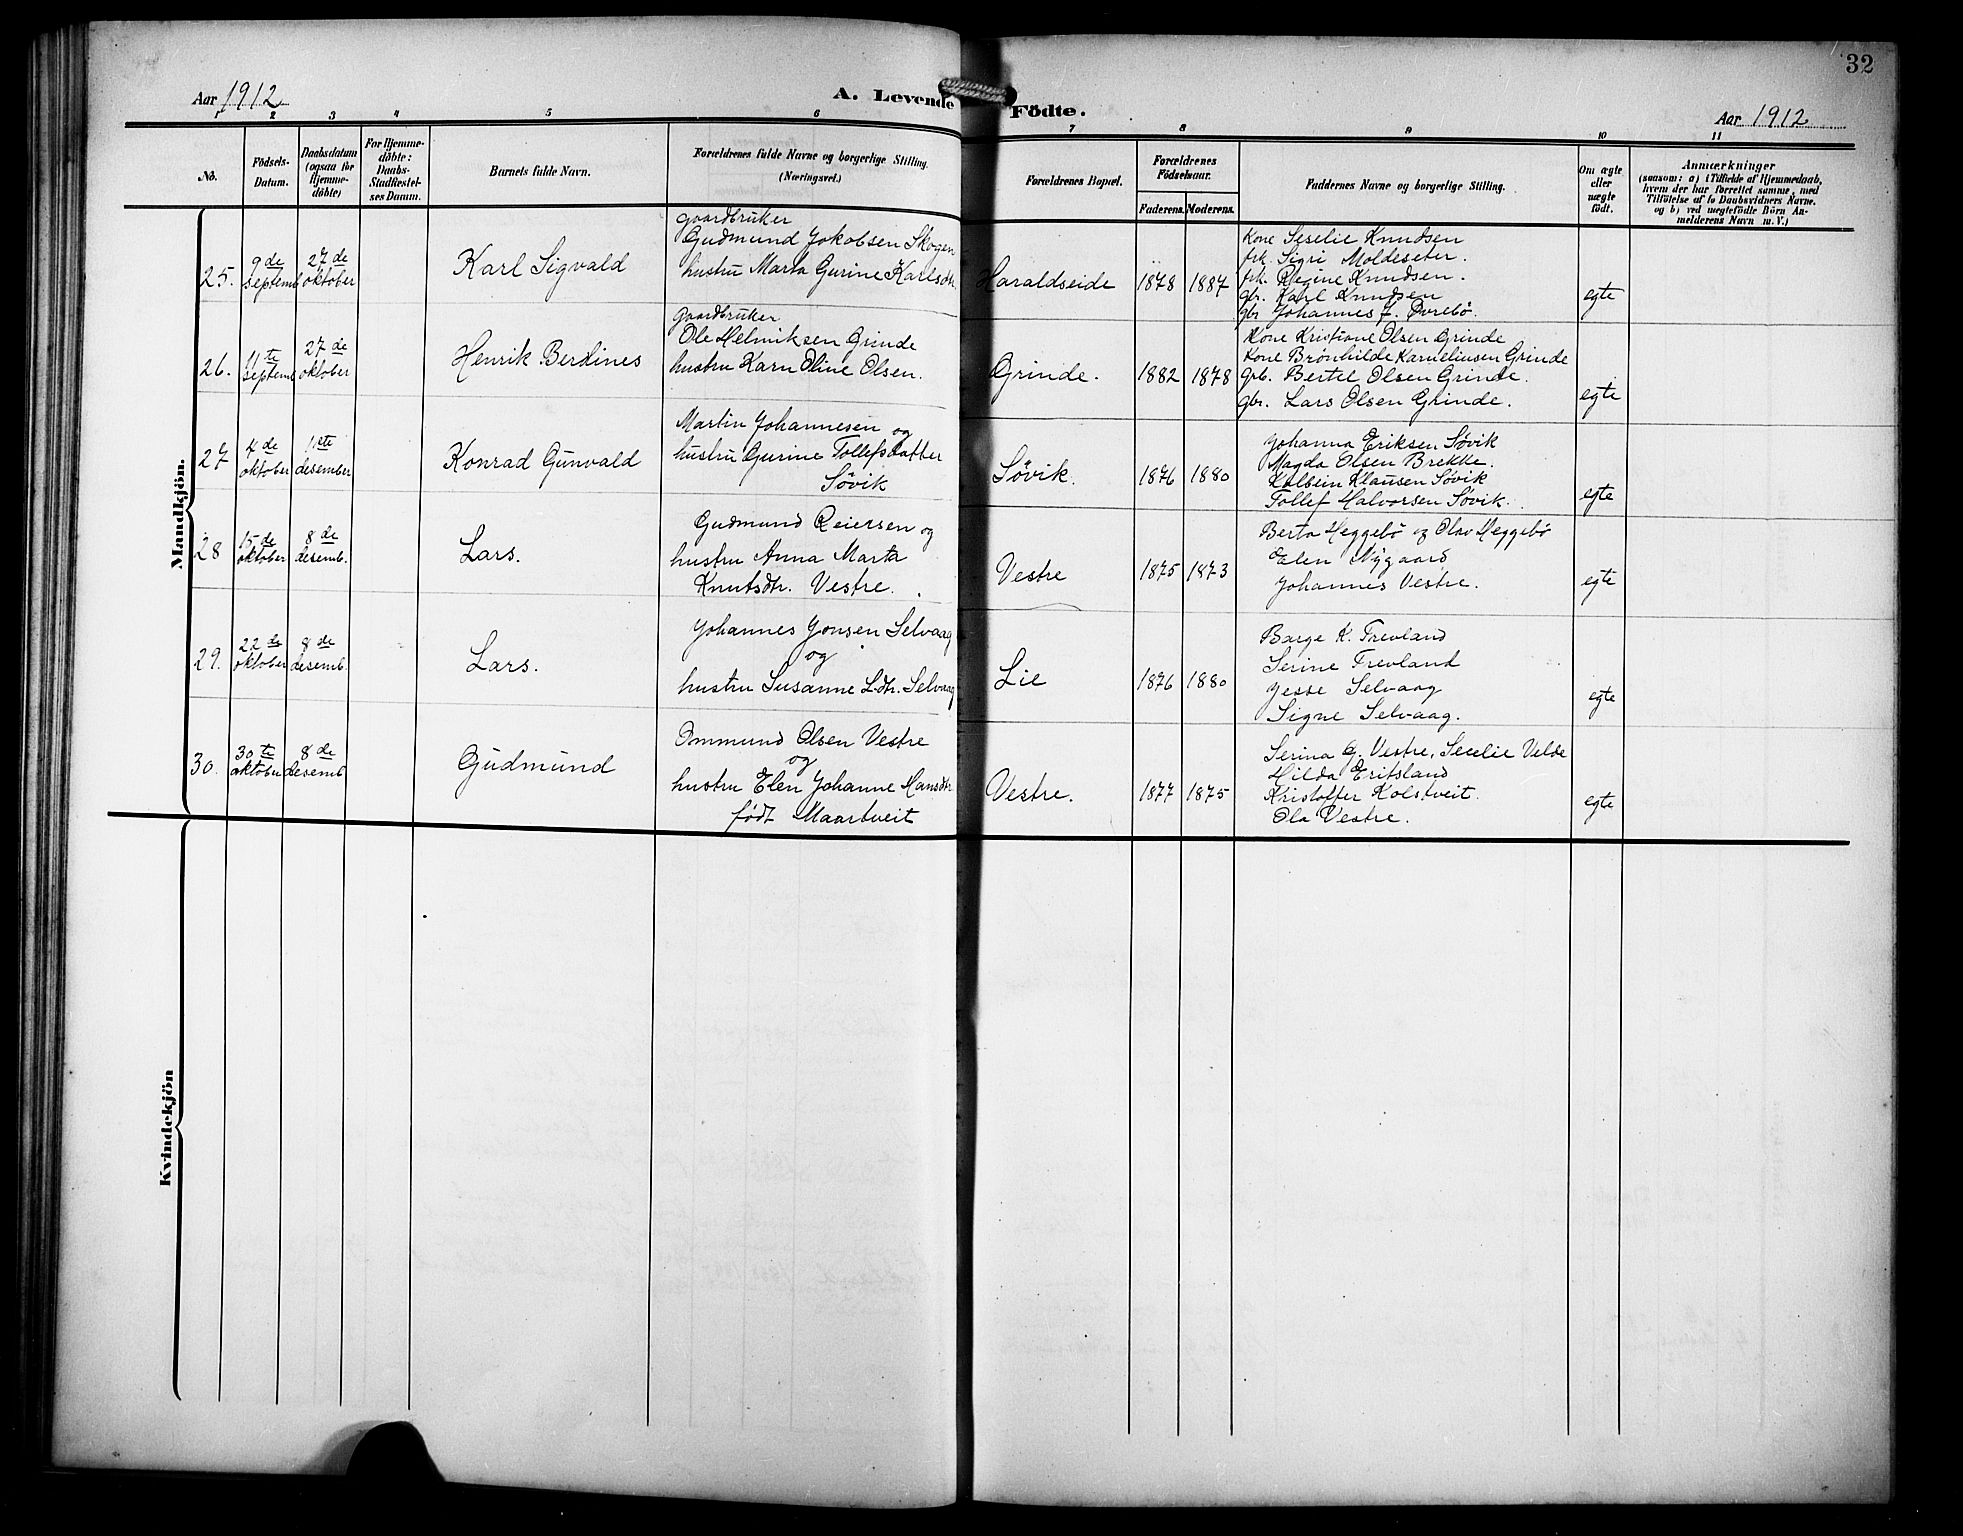 32
Aar 1912
A. Levende Födte.
Aar 1912
1 2 3 4 5 6 7 8 9 10 11
No.
Födsels-
Datum.
Daabsdatum
(ogsaa for
Hjemme-
döbte)
For Hjemme-
döbte:
Daabs-
Stadfæstel-
ses Datum.
Barnets fulde Navn.
Forældrenes fulde Navne og borgerlige Stilling.
(Næringsvei.)
Forældrenes Bopæl.
Forældrenes
Födselsaar.
Faderens. Moderens.
Faddernes Navne og borgerlige Stilling.
Om ægte
eller
uægte
født.
Anmærkninger
(saasom: a) i Tilfælde af Hjemmedaab,
hvem der har forrettet samme, med
Tilföielse af to Daabsvidners Navne.
og b) ved uægtefödte Börn An-
melderens Navn m.V.)
Mandkjön.
25.
9de
septemb
27de
oktober
Karl Sigvald
gaardbruker
Gudmund Jakobsen Skogen
hustru Marta Gurine Karlsdtr.
Haraldseide
1878 1887
Kone Seselie Knudsen
frk. Sigri Moldeseter.
frk. Regine Knudsen.
gbr. Karl Knudsen
gbr Johannes J. Øvrebø.
egte
26.
11te
septemb
27de
oktober
Henrik Berdines
gaardbruker
Ole Helmiksen Grinde
hustru Karn Oline Olsen.
Grinde.
1882 1878
Kone Kristiane Olsen Grinde
Kone Brønhilde Karneliusen Grinde
grb. Bertel Olsen Grinde.
gbr. Lars Olsen Grinde.
egte
27
4de
oktober
1ste
desember
Konrad Gunvald
Martin Johannesen og
hustru Gurine Tollefsdatter
Søvik
Søvik.
1876 1880
Johanna Eriksen Søvik
Magda Olsen Brekke.
Kolbein Klausen Søvik
Tollef Halvorsen Søvik.
egte
28
15de
oktober
8de
desemb.
Lars.
Gudmund Reiersen og
hustru Anna Marta
Knutsdtr. Vestre.
Vestre
1875 1873
Berta Heggebø og Olav Heggebø
Elen Nygaard
Johannes Vestre.
egte
29.
22de
oktober
8de
desemb.
Lars.
Johannes Jonsen Selvaag
og
hustru Susanne L.dtr. Selvaag
Lie
1876 1880
Børge K. Trevland
Serine Trevland
Jesse Selvaag
Signe Selvaag.
egte
30.
30te
oktober
8de
desemb
Gudmund
Ommund Olsen Vestre
og
hustru Elen Johanne Hansdtr.
født Maartveit
Vestre.
1877 1875
Serina G. Vestre, Secelie Velde
Hilda Eritsland
Kristoffer Kolstveit.
Ola Vestre.
egte
Kvindekjön